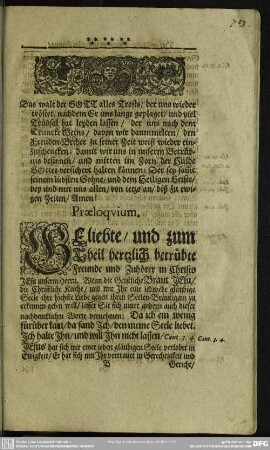 Das walt der GOTT alles Trosts/ der uns wieder
tröstet, nachdem Er uns lange geplaget/ und viel
Trübsal hat leyden lassen/ der uns nach dem
Trunck Weins/ davon wir daummelten/ den
Freuden-Becher zu seiner Zeit weiß wieder ein-
zuschencken/ damit wir uns in unserm Betrüb-
nis besinnen/ und mitten im Zorn der Hulde
GOttes versichert halten können: Der sey samt
seinem liebsten Sohne/ und dem Heiligen Geiste/
bey und mit uns allen/ von jetzo an/ biß zu ewi-
gen Zeiten/ Amen!
Præloqvium,
GEliebte/ und zum
Theil hertzlich betrübte
Freunde und Zuhörer in Christo
JEsu unserm Herrn. Wenn die Geistliche Braut JEsu/
die Christliche Kirche/ und mit Ihr eine jedwede gläubige
Seele ihre höchste Liebe gegen ihren Seelen-Bräutigam zu
erkennen geben will/ lässet Sie sich unter andern auch dieser
nachdencklichen Worte vernehmen: Da ich ein wenig
fürüber kam/ da fand Ich/ den meine Seele liebet.
Ich halte Ihn/ und will Ihn nicht lassen/ Cant. 3. 4.
Cant. 3. 4.
JEsus hat sich mit einer jeden gläubigen Seele verlobet in
Ewigkeit/ Er hat sich mit Ihr vertrauet in Gerechtigkeit und
B
Gericht/